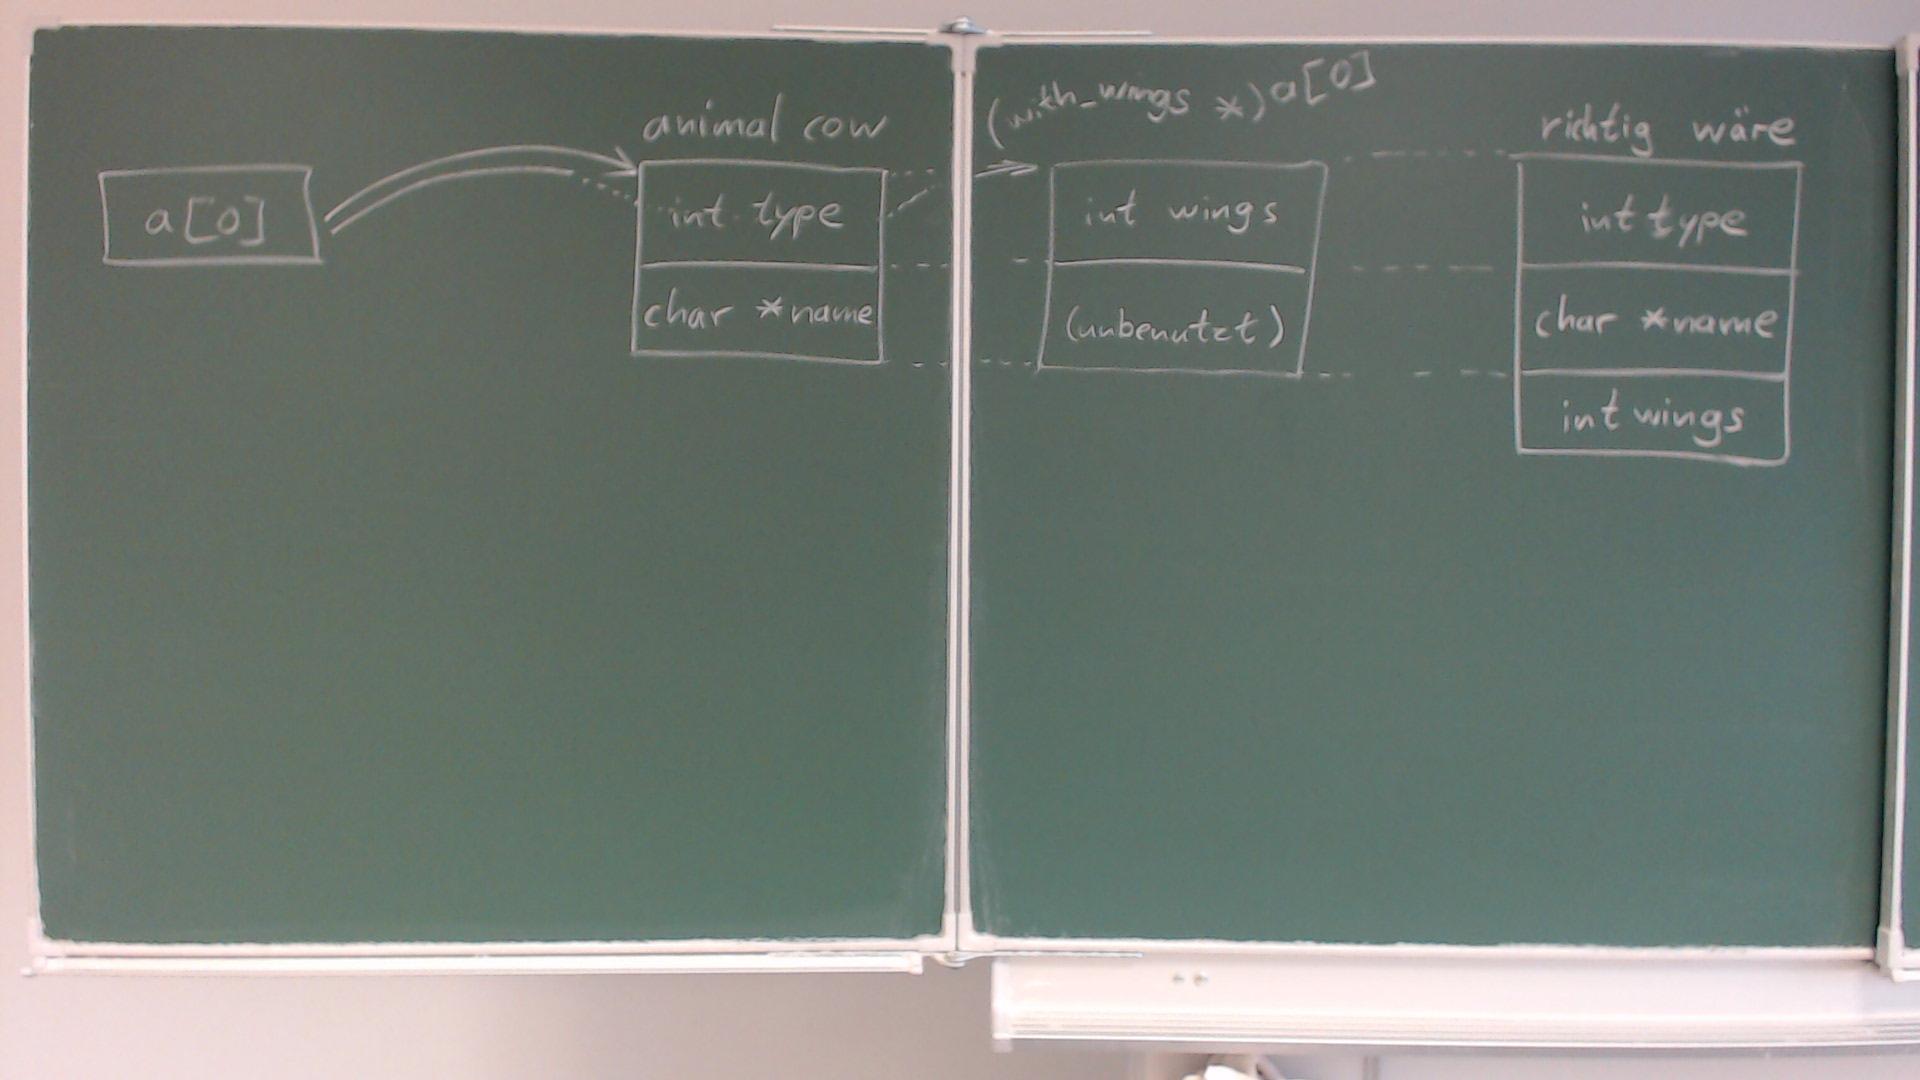 a[0]
animal cow
int type
char *name
(with_wings *)a[0]
int wings
(unbenutzt)
richtig wäre
int type
char *name
int wings